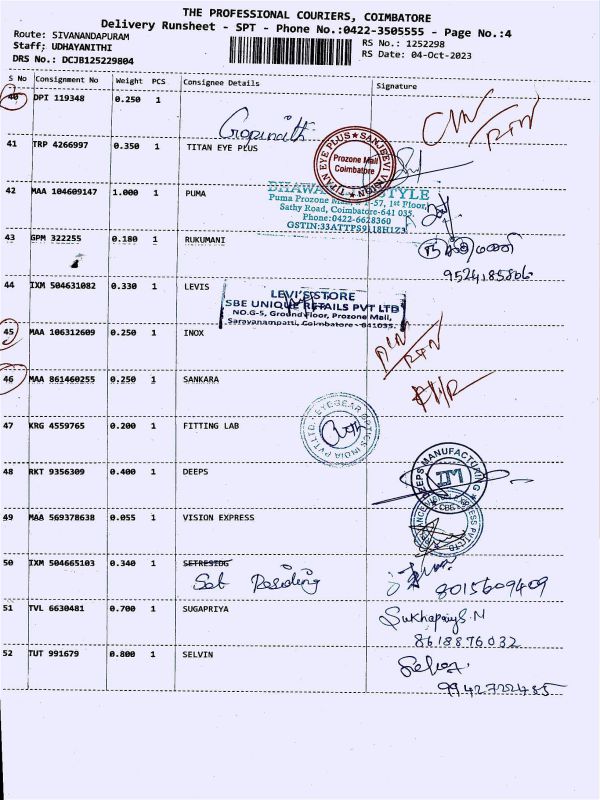 THE PROFESSIONAL COURIERS, COIMBATORE
Delivery Runsheet - SPT - Phone No.:0422-3505555 - Page No.:4
Route: SIVANANDAPURAM
Staff; UDHAYANITHI
DRS No.: DCJB125229804
RS No.: 1252298
RS Date: 04-Oct-2023
S No Consignment No Weight PCS Consignee Details Signature
40 DPI 119348 0.250 1
Gopinath
41 TRP 4266997 0.350 1 TITAN EYE PLUS
TITAN EYE PLUS ★ SANJEEVI VISION ★
Prozone Mall
Coimbatore
42 MAA 104609147 1.000 1 PUMA
STYLE
Puma Prozone Mall, 1st Floor,
Sathy Road, Coimbatore-641 035.
Phone:0422-6628360
GSTIN:33ATTPS9118H1Z3
43 GPM 322255 0.180 1 RUKUMANI
9524185806
44 IXM 504631082 0.330 1 LEVIS
LEVI'S STORE
SBE UNIQUE RETAILS PVT LTD
NO.G-5, Ground Floor, Prozone Mall,
Saravanampatti, Coimbatore - 641035.
45 MAA 106312609 0.250 1 INOX
46 MAA 861460255 0.250 1 SANKARA
47 KRG 4559765 0.200 1 FITTING LAB
EYEGEAR OPTICS INDIA PVT.LTD.
48 RKT 9356309 0.400 1 DEEPS
DEEPS MANUFACTURING
CBE
49 MAA 569378638 0.055 1 VISION EXPRESS
50 IXM 504665103 0.340 1 SETRESIDG
Set Residing
8015609409
51 TVL 6630481 0.700 1 SUGAPRIYA
8618876032
52 TUT 991679 0.800 1 SELVIN
9942722485